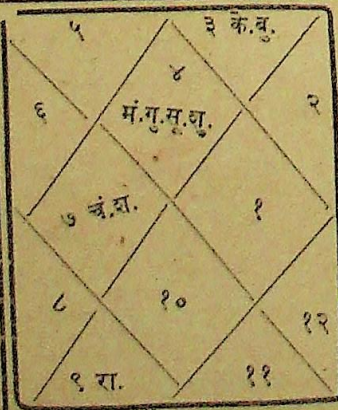 ५ ३ के.बु.
४
६ मं.गु.सू.शु. २
७ चं.श. १
८ १० १२
९ रा. ११